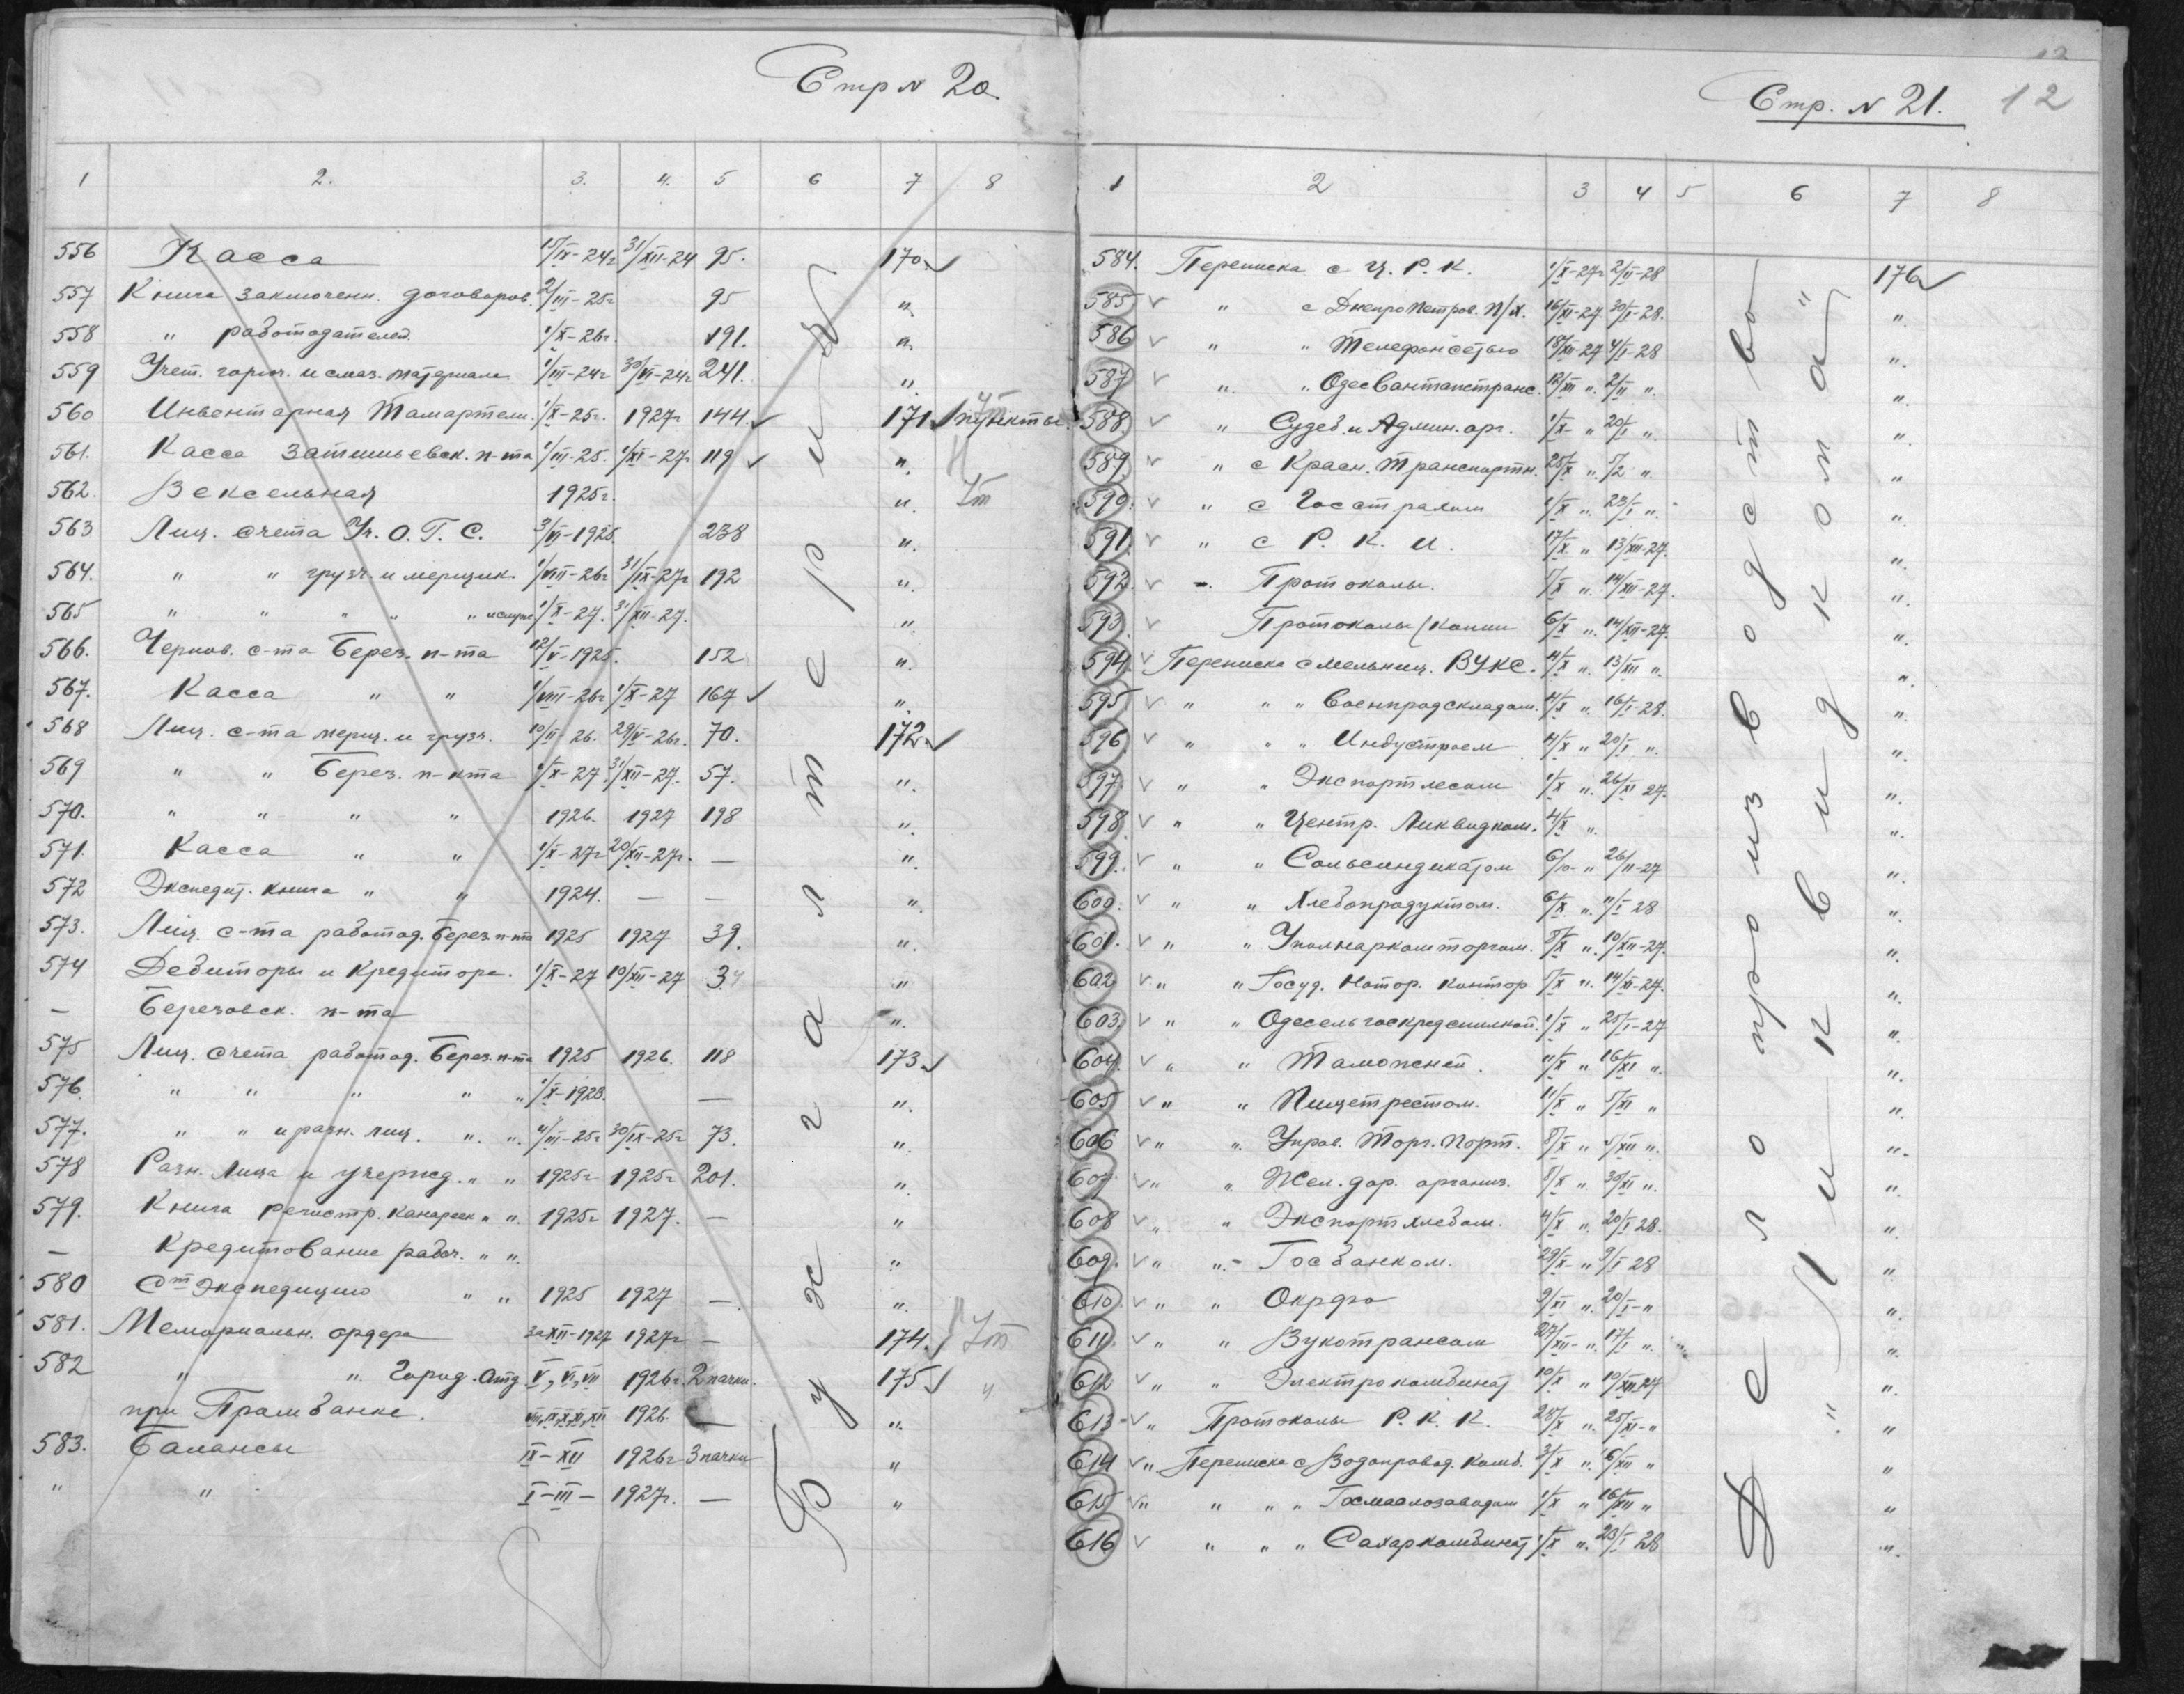 Стр № 20.
1 2. 3. 4. 5 6 7 8
556 Касса 15/IV-24г 31/XII-24 95. 170.
557 Книга заключенн. договоров. 2/III-25г 95 "
558 " работодателей. 1/X-26г. 191. "
559 Учет. горюч. и смаз. материала 1/III-24г 30/VI-24г 241. "
560 Инвентарная Тамартели. 1/X-25г. 1927г 144. 171. пункты
561. Касса Затишьевск. п-та 1/III-25. 1/XI-27г 119 "
562. Вексельная 1925г. "
563 Лиц. счета 3/VI-1925. 238 "
564. " " грузч. и мерщик. 1/VIII-26г 31/IX-27г 192 "
565 " " " " " 1/X-27. 31/XII-27. "
566. Чернов. с-та Берез. п-та 12/V-1925. 152 "
567. Касса " " 1/VIII-26г 1/X-27 167 "
568 Лиц. с-та мерщ. и грузч. 10/II-26. 29/V-26г. 70. 172.
569 " " Берез. п-кта 1/X-27. 31/XII-27. 57. "
570. " " " " 1926. 1927 198 "
571. Касса " " 1/X-27г 20/XII-27г. — "
572 Экспедит. книга " " 1924. — — "
573. Лиц. с-та работод. Берез. п-та 1925 1927 39. "
574 Дебиторы и Кредитора. 1/X-27 10/XII-27 34 "
— Березовск. п-та "
575 Лиц. счета работод. Берез. п-та 1925 1926. 118 173
576. " " " " " 1/X-1923. — "
577. " " и разн. лиц. " " 4/III-25г 30/IX-25г 73. "
578 Разн. лица и учережд. " " 1925г 1925г 201. "
579. Книга регистр. " " 1925г 1927. — "
— Кредитование рабоч. " " "
580 Ст Экспедицию " " 1925 1927 — "
581. Мемориальн. ордера за XII-1927 1927г — 174.
582 " " Город. отд V, VI, VII 1926г. 2 пачки. 175
при Промбанке. 1926. — "
583. Балансы IX-XII 1926г 3 пачки "
" " I-III- 1927г. — "
Бухгалтерия
Стр. № 21. 12
1 2 3 4 5 6 7 8
584. Переписка с Ц. Р. К. 1/X-27г 2/II-28 176
585 " с Днепропетров. П/Х. 16/XI-27 30/I-28. "
586 " " Телефонсетью 18/XII-27 4/I-28 "
587 " " 12/XII " 2/II " "
588. " Судеб. и Админ. орг. 1/X- " 20/I " "
589. " с Красн. Транспортн. 25/X " 5/2 " "
590. " с Госстрахом 1/X " 23/I " "
591. " с Р. К. И. 17/X " 13/XII-27. "
592. - Протоколы. 5/X " 14/XII-27. "
593. Протоколы (копии 6/X " 14/XII-27. "
594. Переписка с мельниц. ВУКС. 4/X " 13/XII " "
595 " " " Военпродскладом. 4/X " 16/I-28. "
596. " " " Индустроем 4/X " 20/I " "
597. " " Экспортлесом 1/X " 26/XI 27. "
598. " " Центр. Ликвидком. 4/X " "
599. " " Сольсиндикатом 6/10- " 26/11-27 "
600. " " Хлебопродуктом. 6/X " 11/I 28 "
601. " " Уполнаркомторгом. 8/X " 10/XII-27. "
602 " " Госуд. Нотор. Контор 5/X " 14/XI-27. "
603. " " 1/X " 25/I-27 "
604. " " Таможней. 11/X " 16/XI " "
605 " " Пищетрестом. 11/X " 5/XI " "
606 " " Управ. Торг. Порт. 8/X " 5/XII " "
607 " " Жел. дор. организ. 8/X " 30/XI " "
608 " " Экспортхлебом. 4/X " 20/I 28. "
609. " " - Госбанком. 29/X- " 9/I 28 "
610. " " Окрфо 9/XI " 20/I- " "
611. " " Вукотрансом 27/XII- " 17/I " "
612 " " Электрокомбинат 10/X " 10/XII 27 "
613- " Протоколы Р. К. К. 28/X " 25/XI- " "
614 " Переписка с Водопровод. Комб. 3/X " 6/XII " "
615 " " " " Госмаслозаводом 1/X " 16/XII " "
616 " " " Сахаркомбинат 1/X " 23/I 28 "
Делопроизводство
" Ликвидкома "